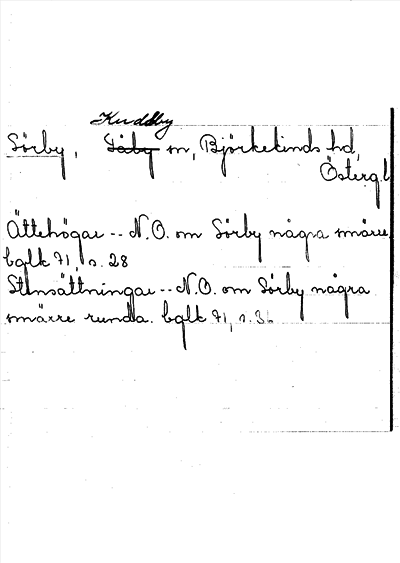 Kuddby
Sörby, Låby sn, Björkekinds hd,
Östergl
Ättehögar -- N.O. om Sörby några smärre.
bglk 71, s. 28
Stensättningar -- N.O. om Sörby några
smärre runda. bglk 71, s. 36